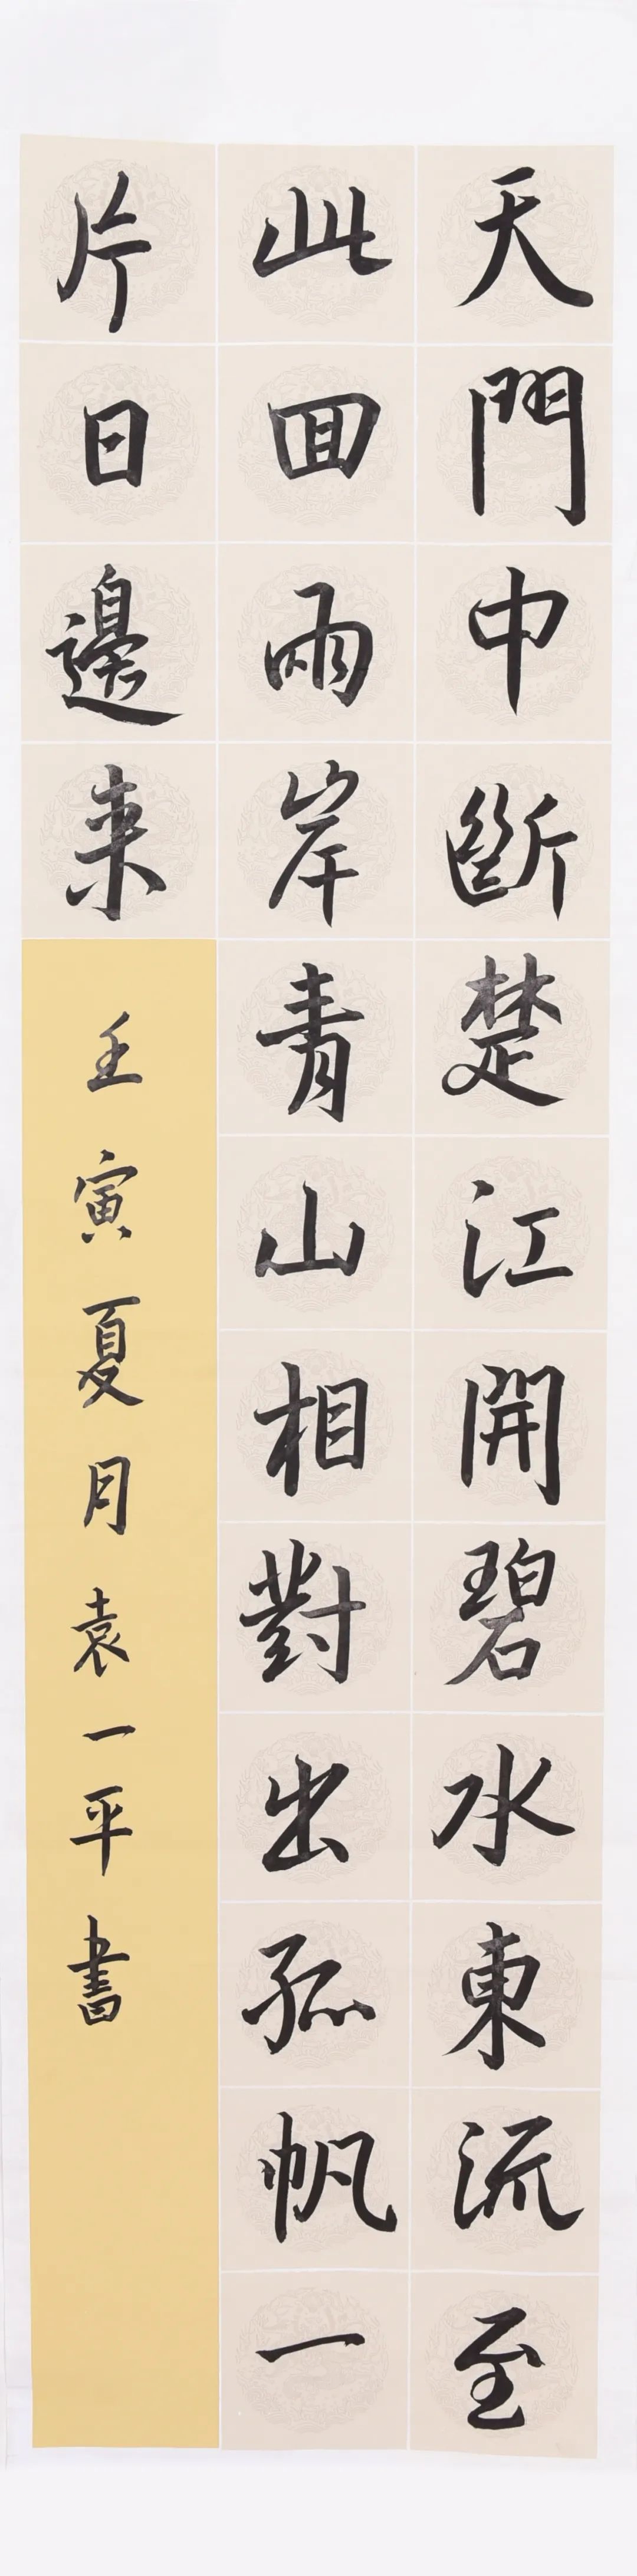 天門中斷楚江開碧水東流至
此回兩岸青山相對出孤帆一
片日邊来
壬寅夏月袁一平書